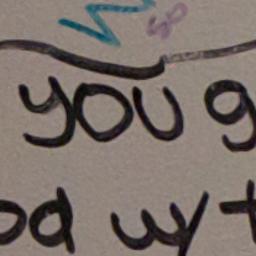 you g
od w/t